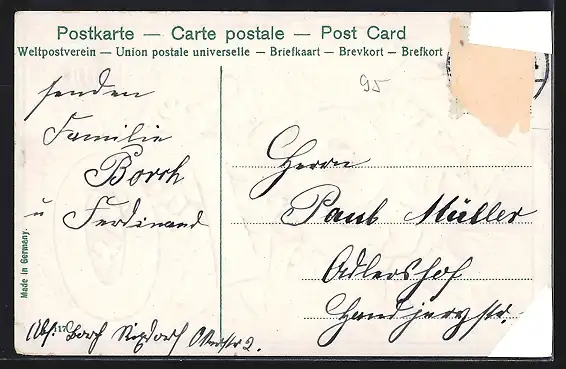 Postkarte — Carte postale — Post Card
Weltpostverein — Union postale universelle — Briefkaart — Brevkort — Brefkort
95
senden
Familie
Borch
u Ferdinand
Herrn
Paul Müller
Adlershof
Handjerystr.
Abs: Borch Rixdorf 2.
Made in Germany.